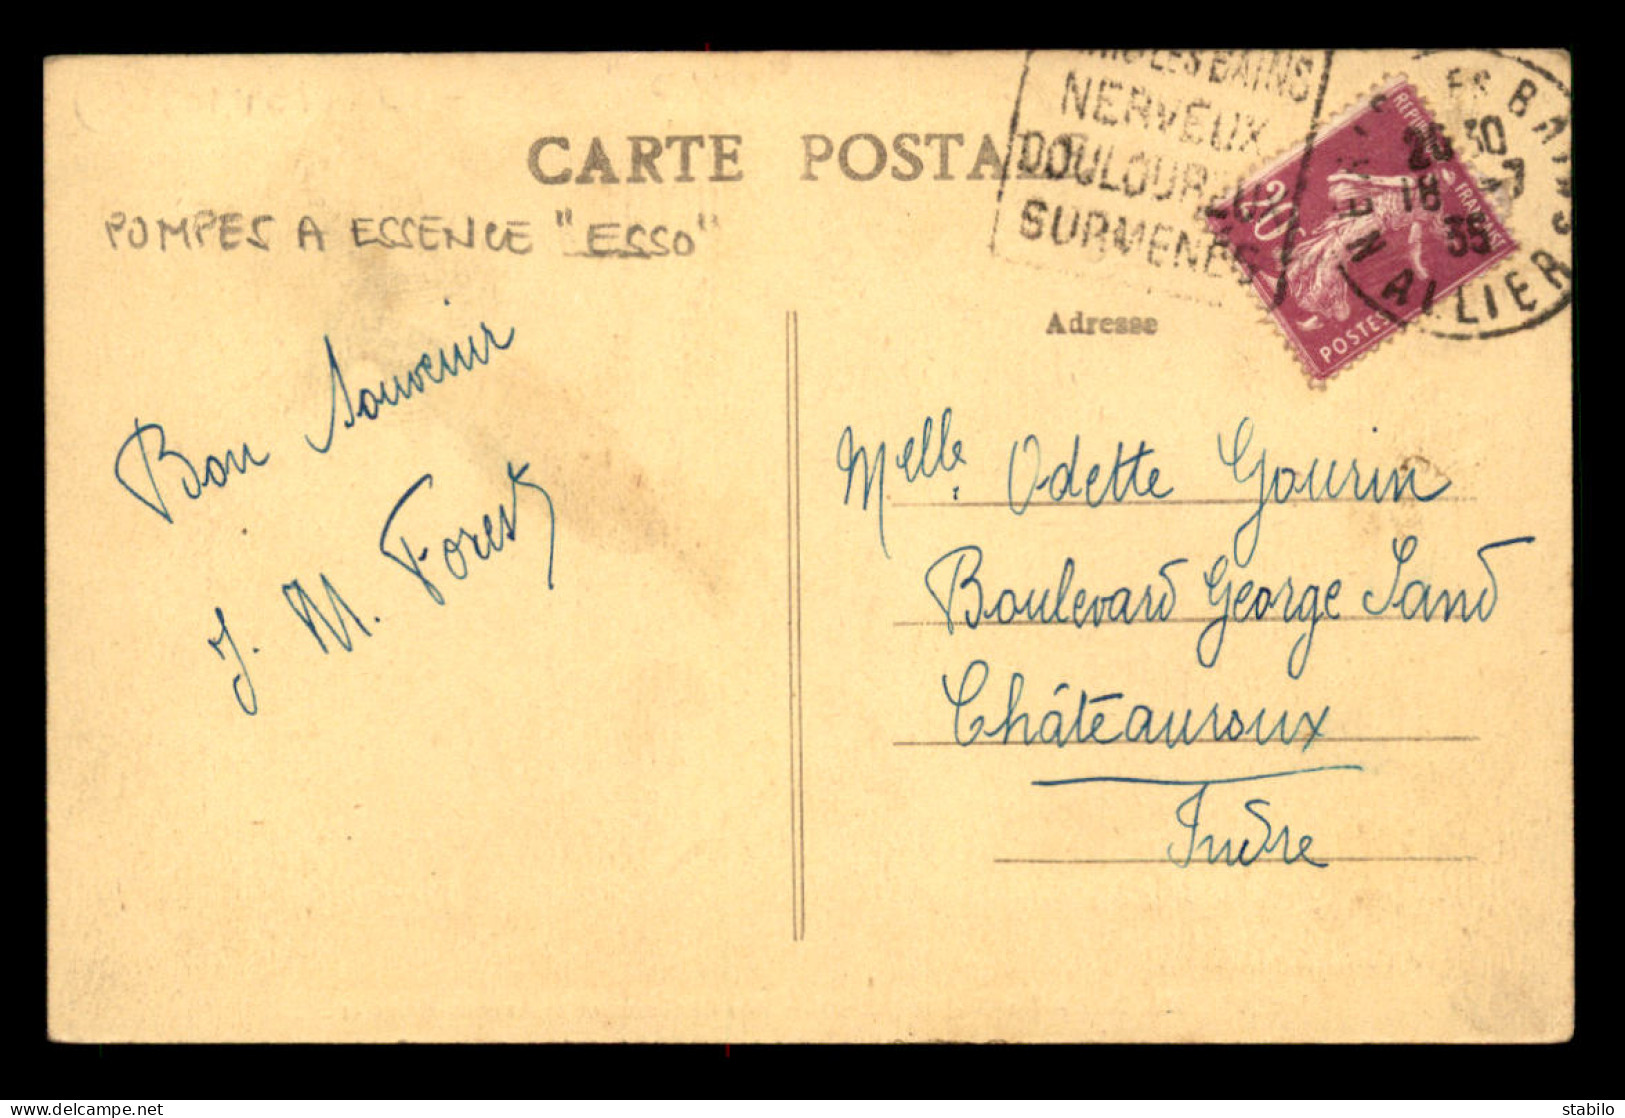 CARTE POSTALE
POMPES A ESSENCE "ESSO"
LES BAINS
NERVEUX
DOULOUREUX
SURMENÉS
20
POSTES
BAINS
20 30
18 -7
35
NERIS
ALLIER
Adresse
Bon Souvenir
J. M. Forest
Melle. Odette Gourin
Boulevard George Sand
Châteauroux
Indre
stabilo | delcampe.net